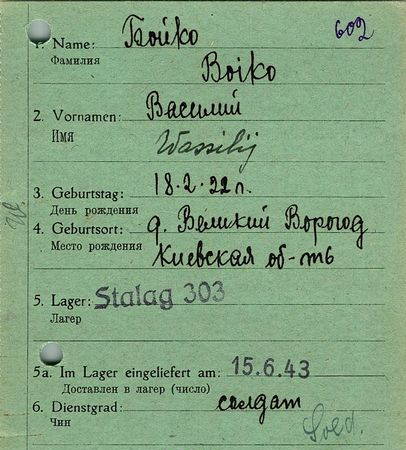 602
1. Name: Бойко
Фамилия
Boiko
2. Vornamen: Василий
ИМЯ
Wassilij
3. Geburtstag: 18.2.22 г.
День рождения
4. Geburtsort: д. Великий Ворогод
Место рождения Киевская об-ть
5. Lager: Stalag 303
Лагер
5a. Im Lager eingeliefert am: 15.6.43
Доставлен в лагер (число)
6. Dienstgrad: солдат
Чин
Sold.